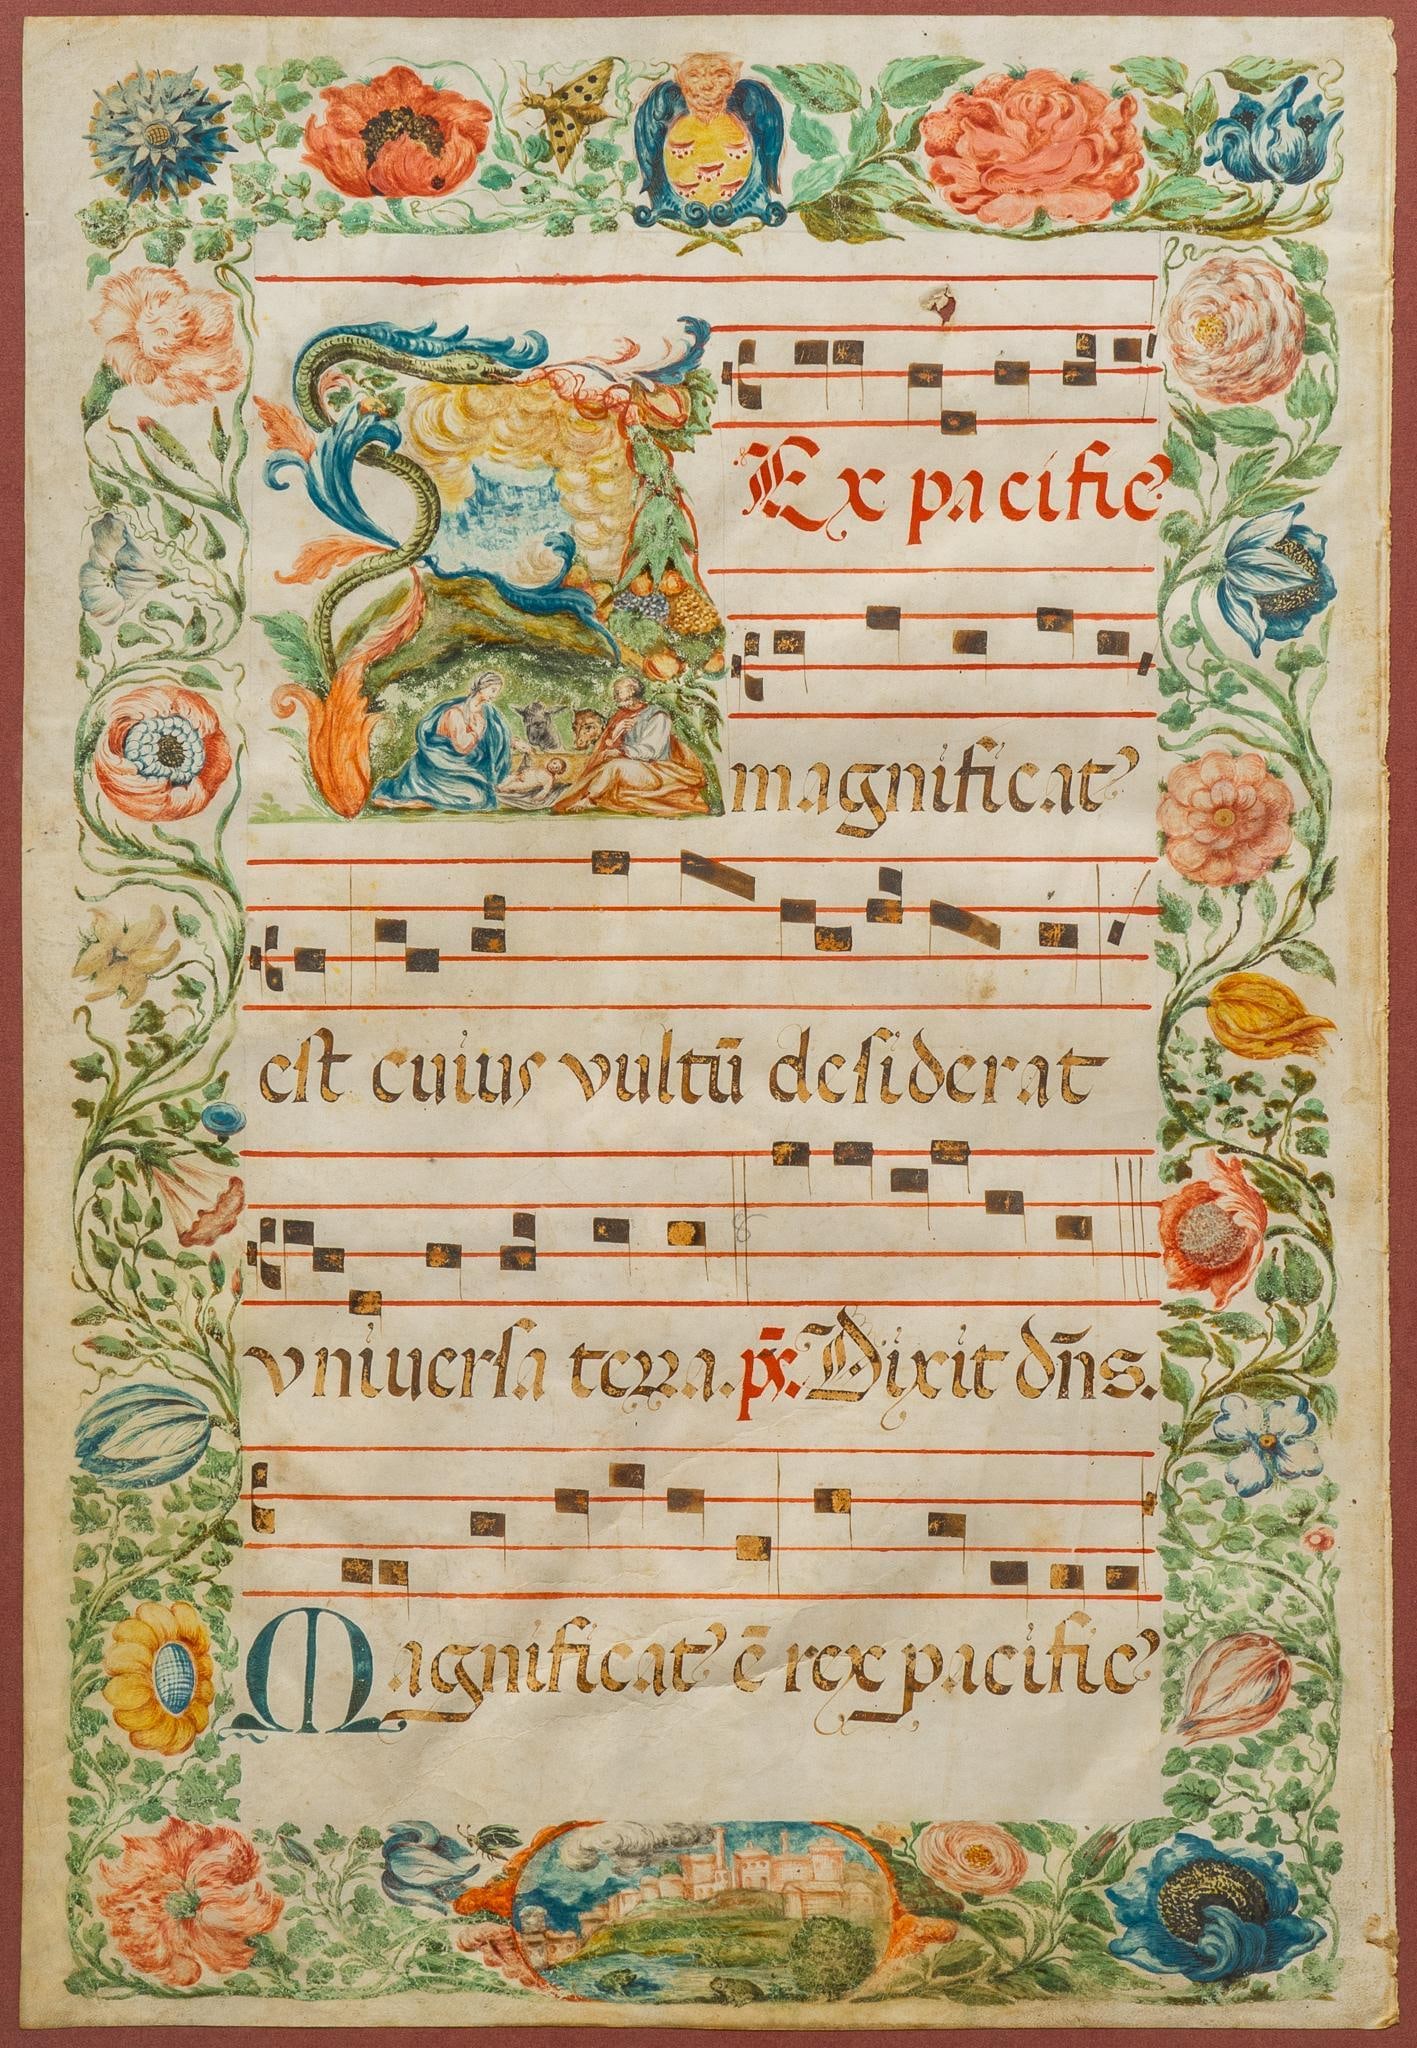 REx pacific9
magnificat9
est cuius vultū desiderat
vniuersa terra. ps̄. Dixit dn̄s.
Magnificat9 ē rex pacific9